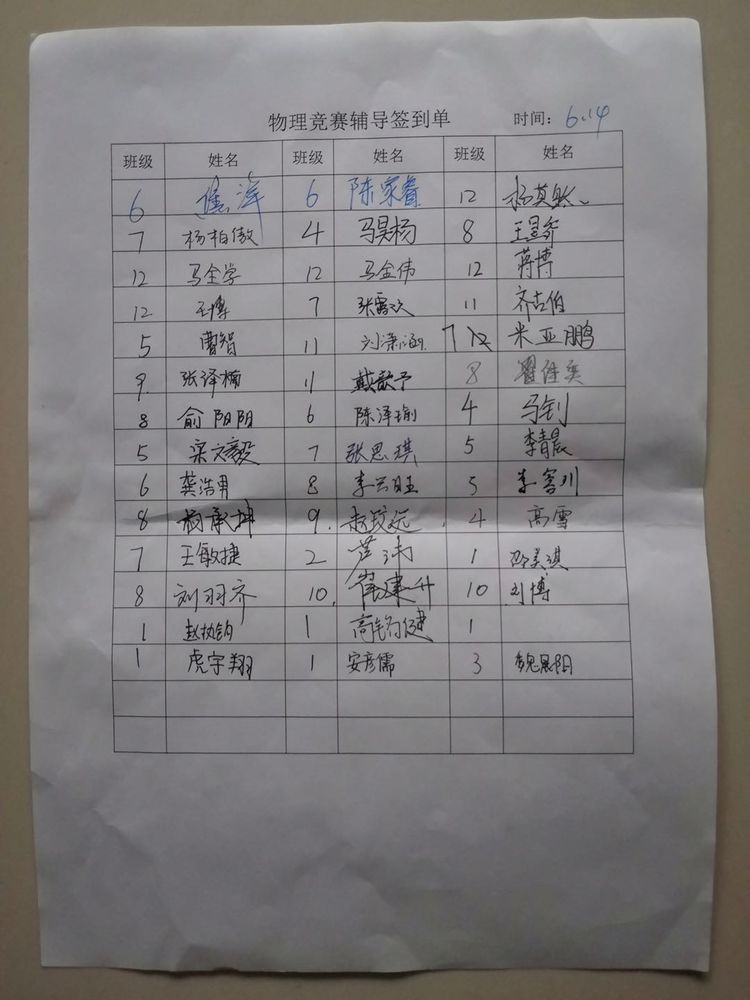 物理竞赛辅导签到单 时间: 6.14
班级 姓名 班级 姓名 班级 姓名
6 焦洋 6 陈家睿 12 杨其然
7 杨柏傲 4 马昊杨 8 王昱
12 马全学 12 马金伟 12 蒋博
12 王博 7 张 11 齐吉伯
5 曹智 11 刘潇涵 7 米亚鹏
9. 张泽楠 11 戴歆予 8 翟佳奕
8 俞阳阴 6 陈泽瑜 4 马钊
5 梁文毅 7 张思琪 5 李青晨
6 龚浩男 8 李云旺 5 李容川
8 杨承坤 9. 赵政远 4 高雪
7 王敏捷 2 1 邵美琪
8 刘羽齐 10. 崔建升 10 刘博
1 赵执钧 1 高 1
1 虎宇翔 1 安彦儒 3 魏晨阳